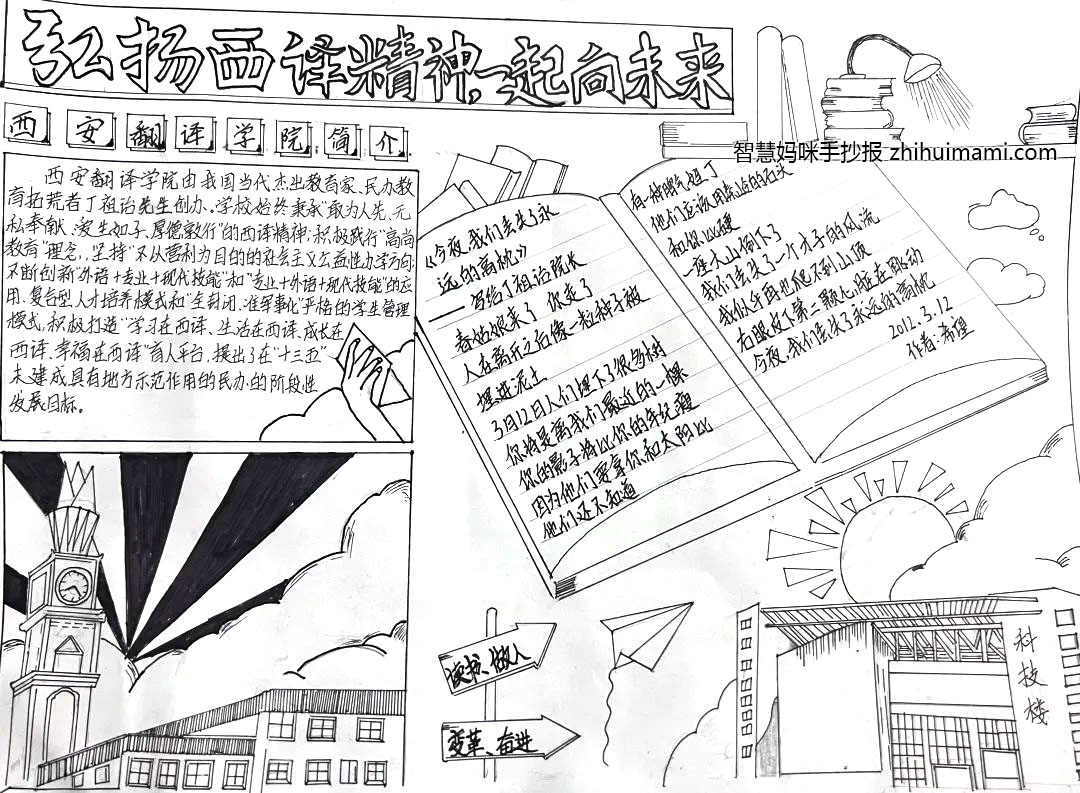 弘扬西译精神,一起向未来
西安翻译学院简介
智慧妈咪手抄报 zhihuimami.com
西安翻译学院由我国当代杰出教育家、民办教
育拓荒者丁祖诒先生创办,学校始终秉承“敢为人先、无
私奉献、爱生如子、厚德敦行”的西译精神;积极践行“高尚
教育”理念,坚持“不从营利为目的的社会主义公益性办学方向;
不断创新“外语+专业+现代技能”和“专业+外语+现代技能”的应
用、复合型人才培养模式和“全封闭、准军事化”严格的学生管理
模式,积极打造“学习在西译、生活在西译、成长在
西译、幸福在西译”育人平台,提出了在“十三五”
末建成具有地方示范作用的民办的阶段性
发展目标。
《今夜,我们丢失了永
远的高枕》
——写给丁祖诒院长
春姑娘来了 你走了
人在离开之后像一粒种子被
埋进泥土
3月12日人们埋下了很多树
你将是离我们最近的一棵
你的影子将以你的年纪瘦
因为他们要拿你和太阳比
他们还不知道
有一种脾气姓丁
他们应该用泰山的石头
和你比硬
一座大山倒下了
我们丢失了一个才子的风流
我似乎再也爬不到山顶
右眼皮下第二颗心脏在跳动
今夜,我们丢失了永远的高枕
2012.3.12
作者:希望
读书、做人
变革、奋进
科技楼